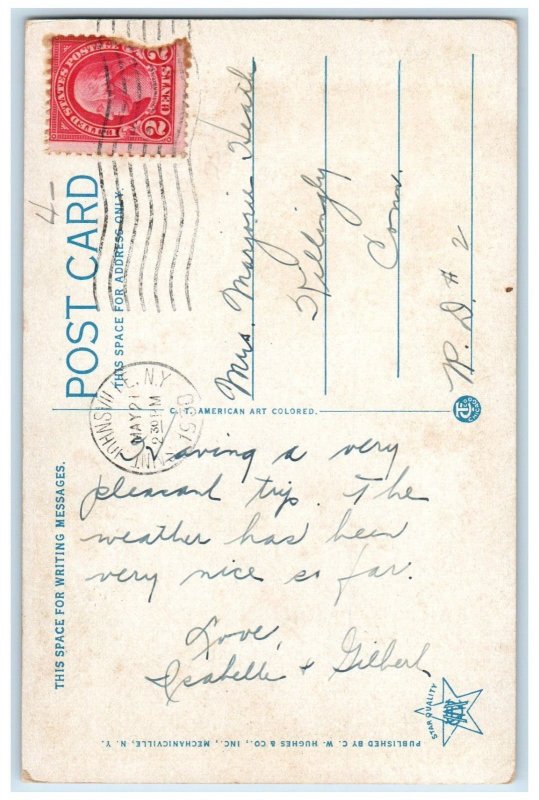 THIS SPACE FOR WRITING MESSAGES.
Having a very
pleasant trip. The
weather has been
very nice so far.
Love,
Isabelle + Gilbert
STAR QUALITY
PUBLISHED BY C. W. HUGHES & CO., INC., MECHANICVILLE, N. Y.
C. T. AMERICAN ART COLORED.
POST CARD
THIS SPACE FOR ADDRESS ONLY.
4-
UNITED STATES POSTAGE
2 CENTS 2
JOHNSVILLE, N.Y.
MAY 21
2 30 PM
Mrs. Marjorie Heath
Killingly
Conn.
R. D. # 2